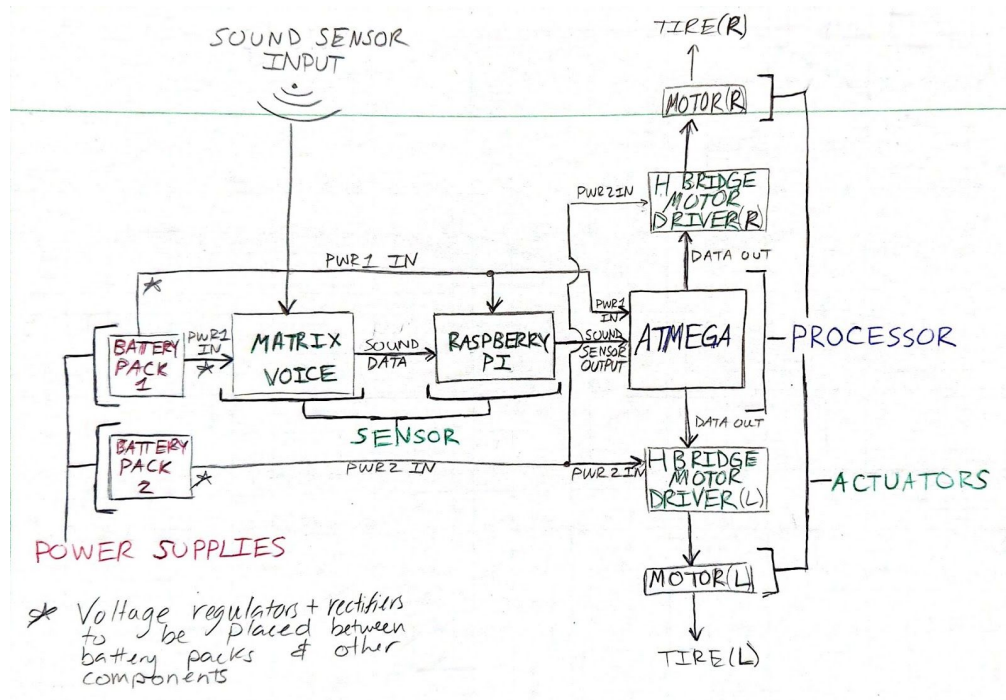 SOUND SENSOR
INPUT
TIRE(R)
MOTOR(R)
PWR2IN
H BRIDGE
MOTOR
DRIVER(R)
DATA OUT
PWR1 IN
*
PWR1
IN
BATTERY
PACK
1
PWR1
IN
*
MATRIX
VOICE
SOUND
DATA
RASPBERRY
PI
SOUND
SENSOR
OUTPUT
ATMEGA
PROCESSOR
SENSOR
DATA OUT
BATTERY
PACK
2
*
PWR2 IN
PWR2IN
H BRIDGE
MOTOR
DRIVER(L)
ACTUATORS
POWER SUPPLIES
MOTOR(L)
TIRE(L)
* Voltage regulators + rectifiers
to be placed between
battery packs & other
components